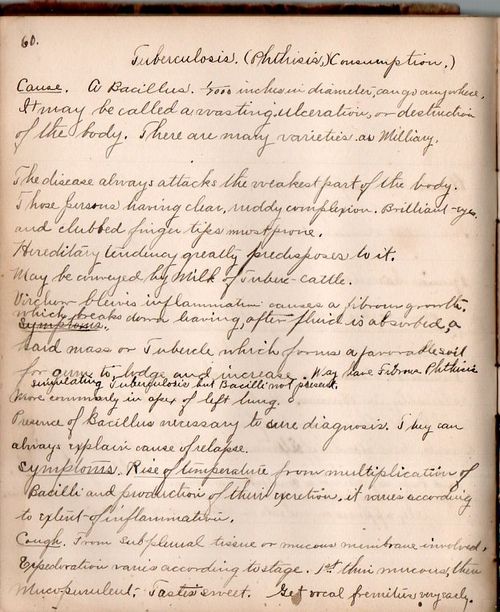 60.
Tuberculosis. (Phthisis,) (Consumption.)
Cause. A Bacillus. inches in diameter, can go anywhere.
It may be called a wasting, ulceration, or destruction
of the body. There are many varieties as Milliary.
The disease always attacks the weakest part of the body.
Those persons having clear, ruddy complexion. Brilliant eyes,
and clubbed finger tips most prone.
Hereditary tendency greatly predisposes to it.
May be conveyed by Milk of Tuberc-cattle.
Virchow inflammation causes a fibrous growth,
which breaks down leaving, after fluid is absorbed, a
Symptoms.
hard mass or Tubercle, which forms a favorable soil
for germ to lodge and increase. May have Fibrous Phthisis
simulating Tuberculosis but Bacilli not present.
More commonly in apex of left lung.
Presence of Bacillus necessary to sure diagnosis. They can
always explain cause of relapse.
Symptoms. Rise of temperature from multiplication of
Bacilli and production of their excretion. it varies according
to extent of inflammation.
Cough. From subpleural tissue or mucous membrane involved.
Expectoration varies according to stage. 1st thin mucous, then
Mucopurulent. Tastes sweet. Get vocal fremitus very early.